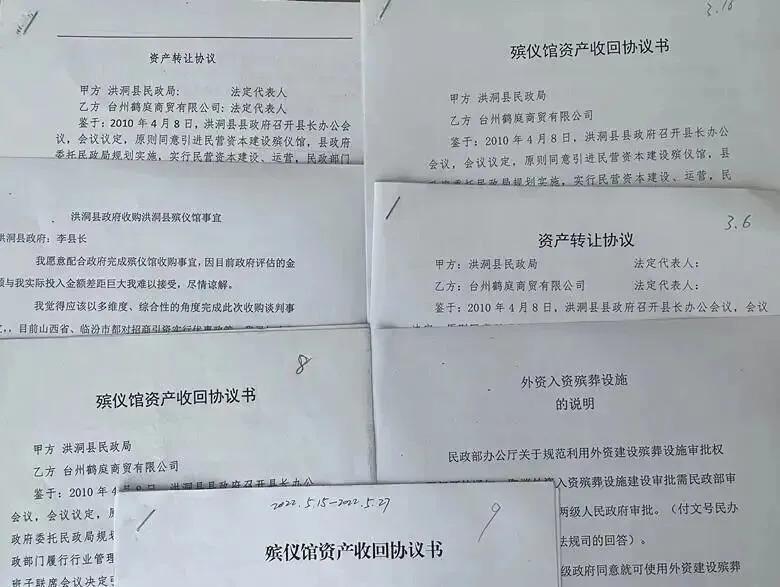 资产转让协议
甲方 洪洞县民政局: 法定代表人
乙方 台州鹤庭商贸有限公司: 法定代表人
鉴于: 2010 年 4 月 8 日, 洪洞县县政府召开县长办公会
议, 会议议定, 原则同意引进民营资本建设殡仪馆, 县政府
委托民政局规划实施, 实行民营资本建设、运营, 民政部门
3.18
殡仪馆资产收回协议书
甲方 洪洞县民政局
乙方 台州鹤庭商贸有限公司
鉴于: 2010 年 4 月 8 日, 洪洞县县政府召开县长办公
会议, 会议议定, 原则同意引进民营资本建设殡仪馆, 县
委托民政局规划实施, 实行民营资本建设、运营, 民
洪洞县政府收购洪洞县殡仪馆事宜
洪洞县政府: 李县长
我愿意配合政府完成殡仪馆收购事宜, 因目前政府评估的金
与我实际投入金额差距巨大我难以接受, 尽情谅解。
我觉得应该以多维度、综合性的角度完成此次收购谈判事
目前山西省、临汾市都对招商引资实行优惠政策
3.6
资产转让协议
甲方: 洪洞县民政局 法定代表人:
乙方: 台州鹤庭商贸有限公司 法定代表人:
鉴于: 2010 年 4 月 8 日, 洪洞县县政府召开县长办公会议, 会议
8
殡仪馆资产收回协议书
甲方 洪洞县民政局
乙方 台州鹤庭商贸有限公司
鉴于: 2010 年 4 月 8 日, 洪洞县县政府召开县长办公
会议, 会议议定,
政府委托民政局规划
政部门履行行业管理
班子联席会议决定
外资入资殡葬设施
的说明
民政部办公厅关于规范利用外资建设殡葬设施审批权
资入资殡葬设施建设审批需民政部审
两级人民政府审批。(付文号民办
法规司的回答)。
级政府同意就可使用外资建设殡葬
2022.5.15-2022.5.27
9
殡仪馆资产收回协议书